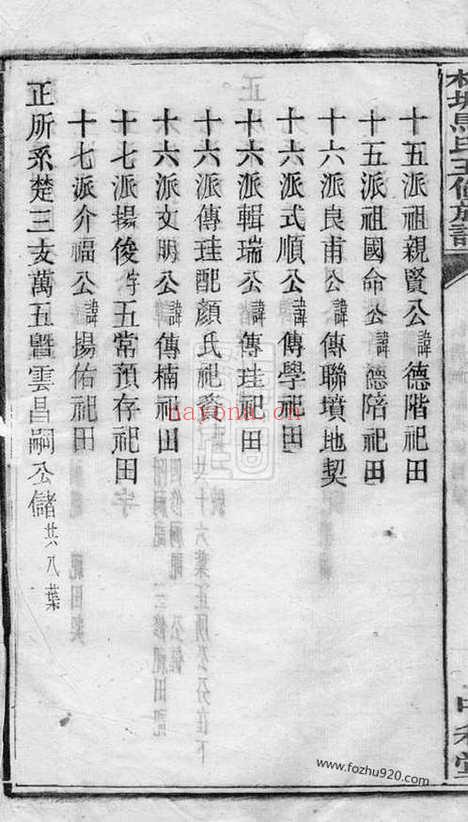 十五派祖親賢公諱德階祀田
十五派祖國命公諱德陪祀田
十六派良甫公諱傳聯墳地契
十六派式順公諱傳學祀田
十六派輯瑞公諱傳珪祀田
十六派傳珪配顏氏祀
十六派文明公諱傳楠祀山
十七派揚俊字五常預存祀田
十七派介福公諱揚佑祀田
正所系楚三支萬五曁雲昌嗣公儲共八葉
氏三修族譜
中和堂
nayona.cn
www.fozhu920.com